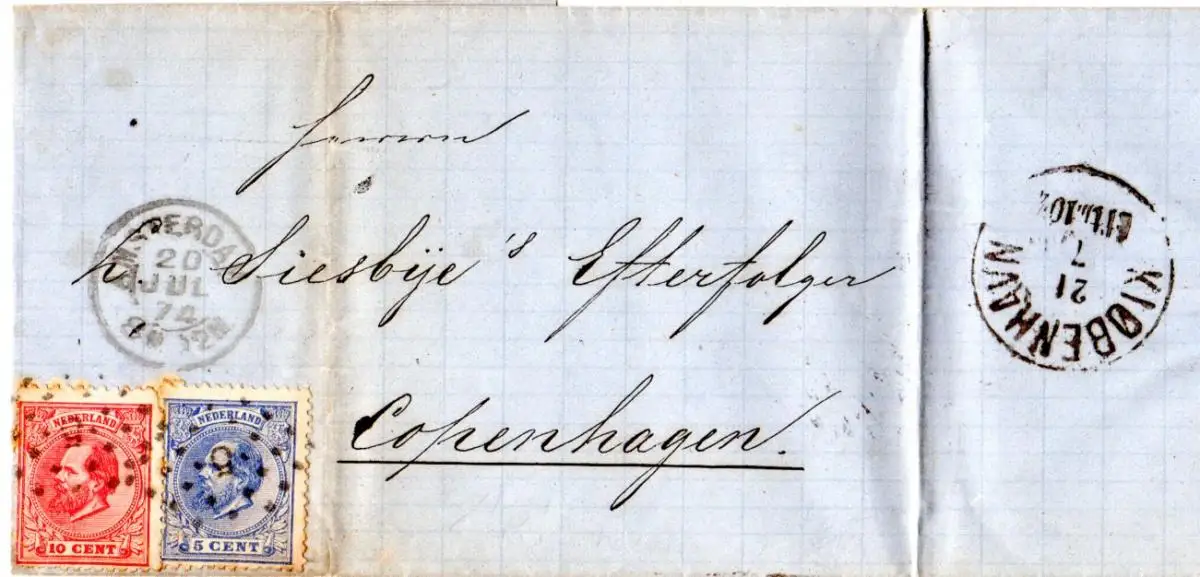 Herrn
L. Siesbije's Efterfolger
Copenhagen.
AMSTERDAM
20
JUL
74
NEDERLAND
10 CENT
NEDERLAND
5 CENT
KIØBENHAVN
21
7